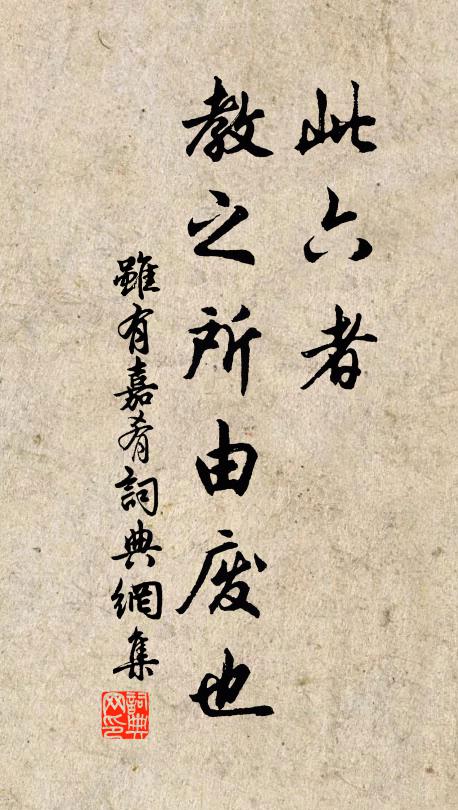 此六者
教之所由废也
雖有嘉肴詞典網集
詞典
网印